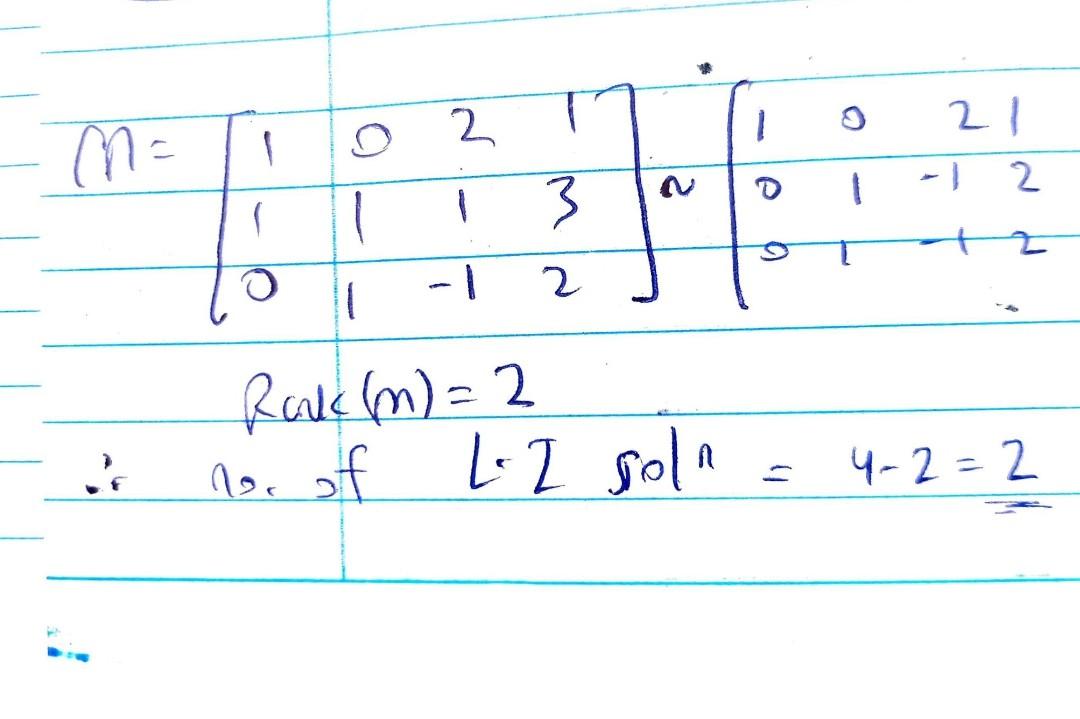 M = [ 1 0 2 1 ] ~ [ 1 0 2 1
1 1 1 3 0 1 -1 2
0 1 -1 2 0 1 -1 2
Rank (m) = 2
∴ no. of L.I soln = 4-2 = 2